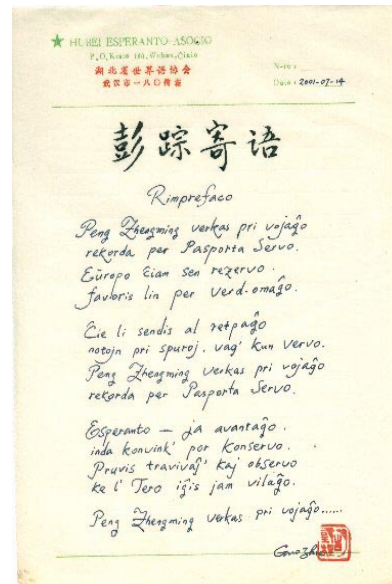 ★ HUBEI ESPERANTO-ASOCIO
P.O.Kesto 180, Wuhan, Ĉinio
湖北省世界语协会
武汉市一八〇信箱
N-ro:
Dato: 2001-07-14
彭踪寄语
Rimprefaco
Peng Zhengming verkas pri vojaĝo
rekorda per Pasporta Servo.
Eŭropo ĉiam sen rezervo
favoris lin per verd-omaĝo.
Ĉie li sendis al retpaĝo
notojn pri spuroj, vag' kun vervo.
Peng Zhengming verkas pri vojaĝo
rekorda per Pasporta Servo.
Esperanto — ja avantaĝo,
inda konvink' por konservo.
Pruvis travivaĵ' kaj observo
ke l' Tero iĝis jam vilaĝo.
Peng Zhengming verkas pri vojaĝo......